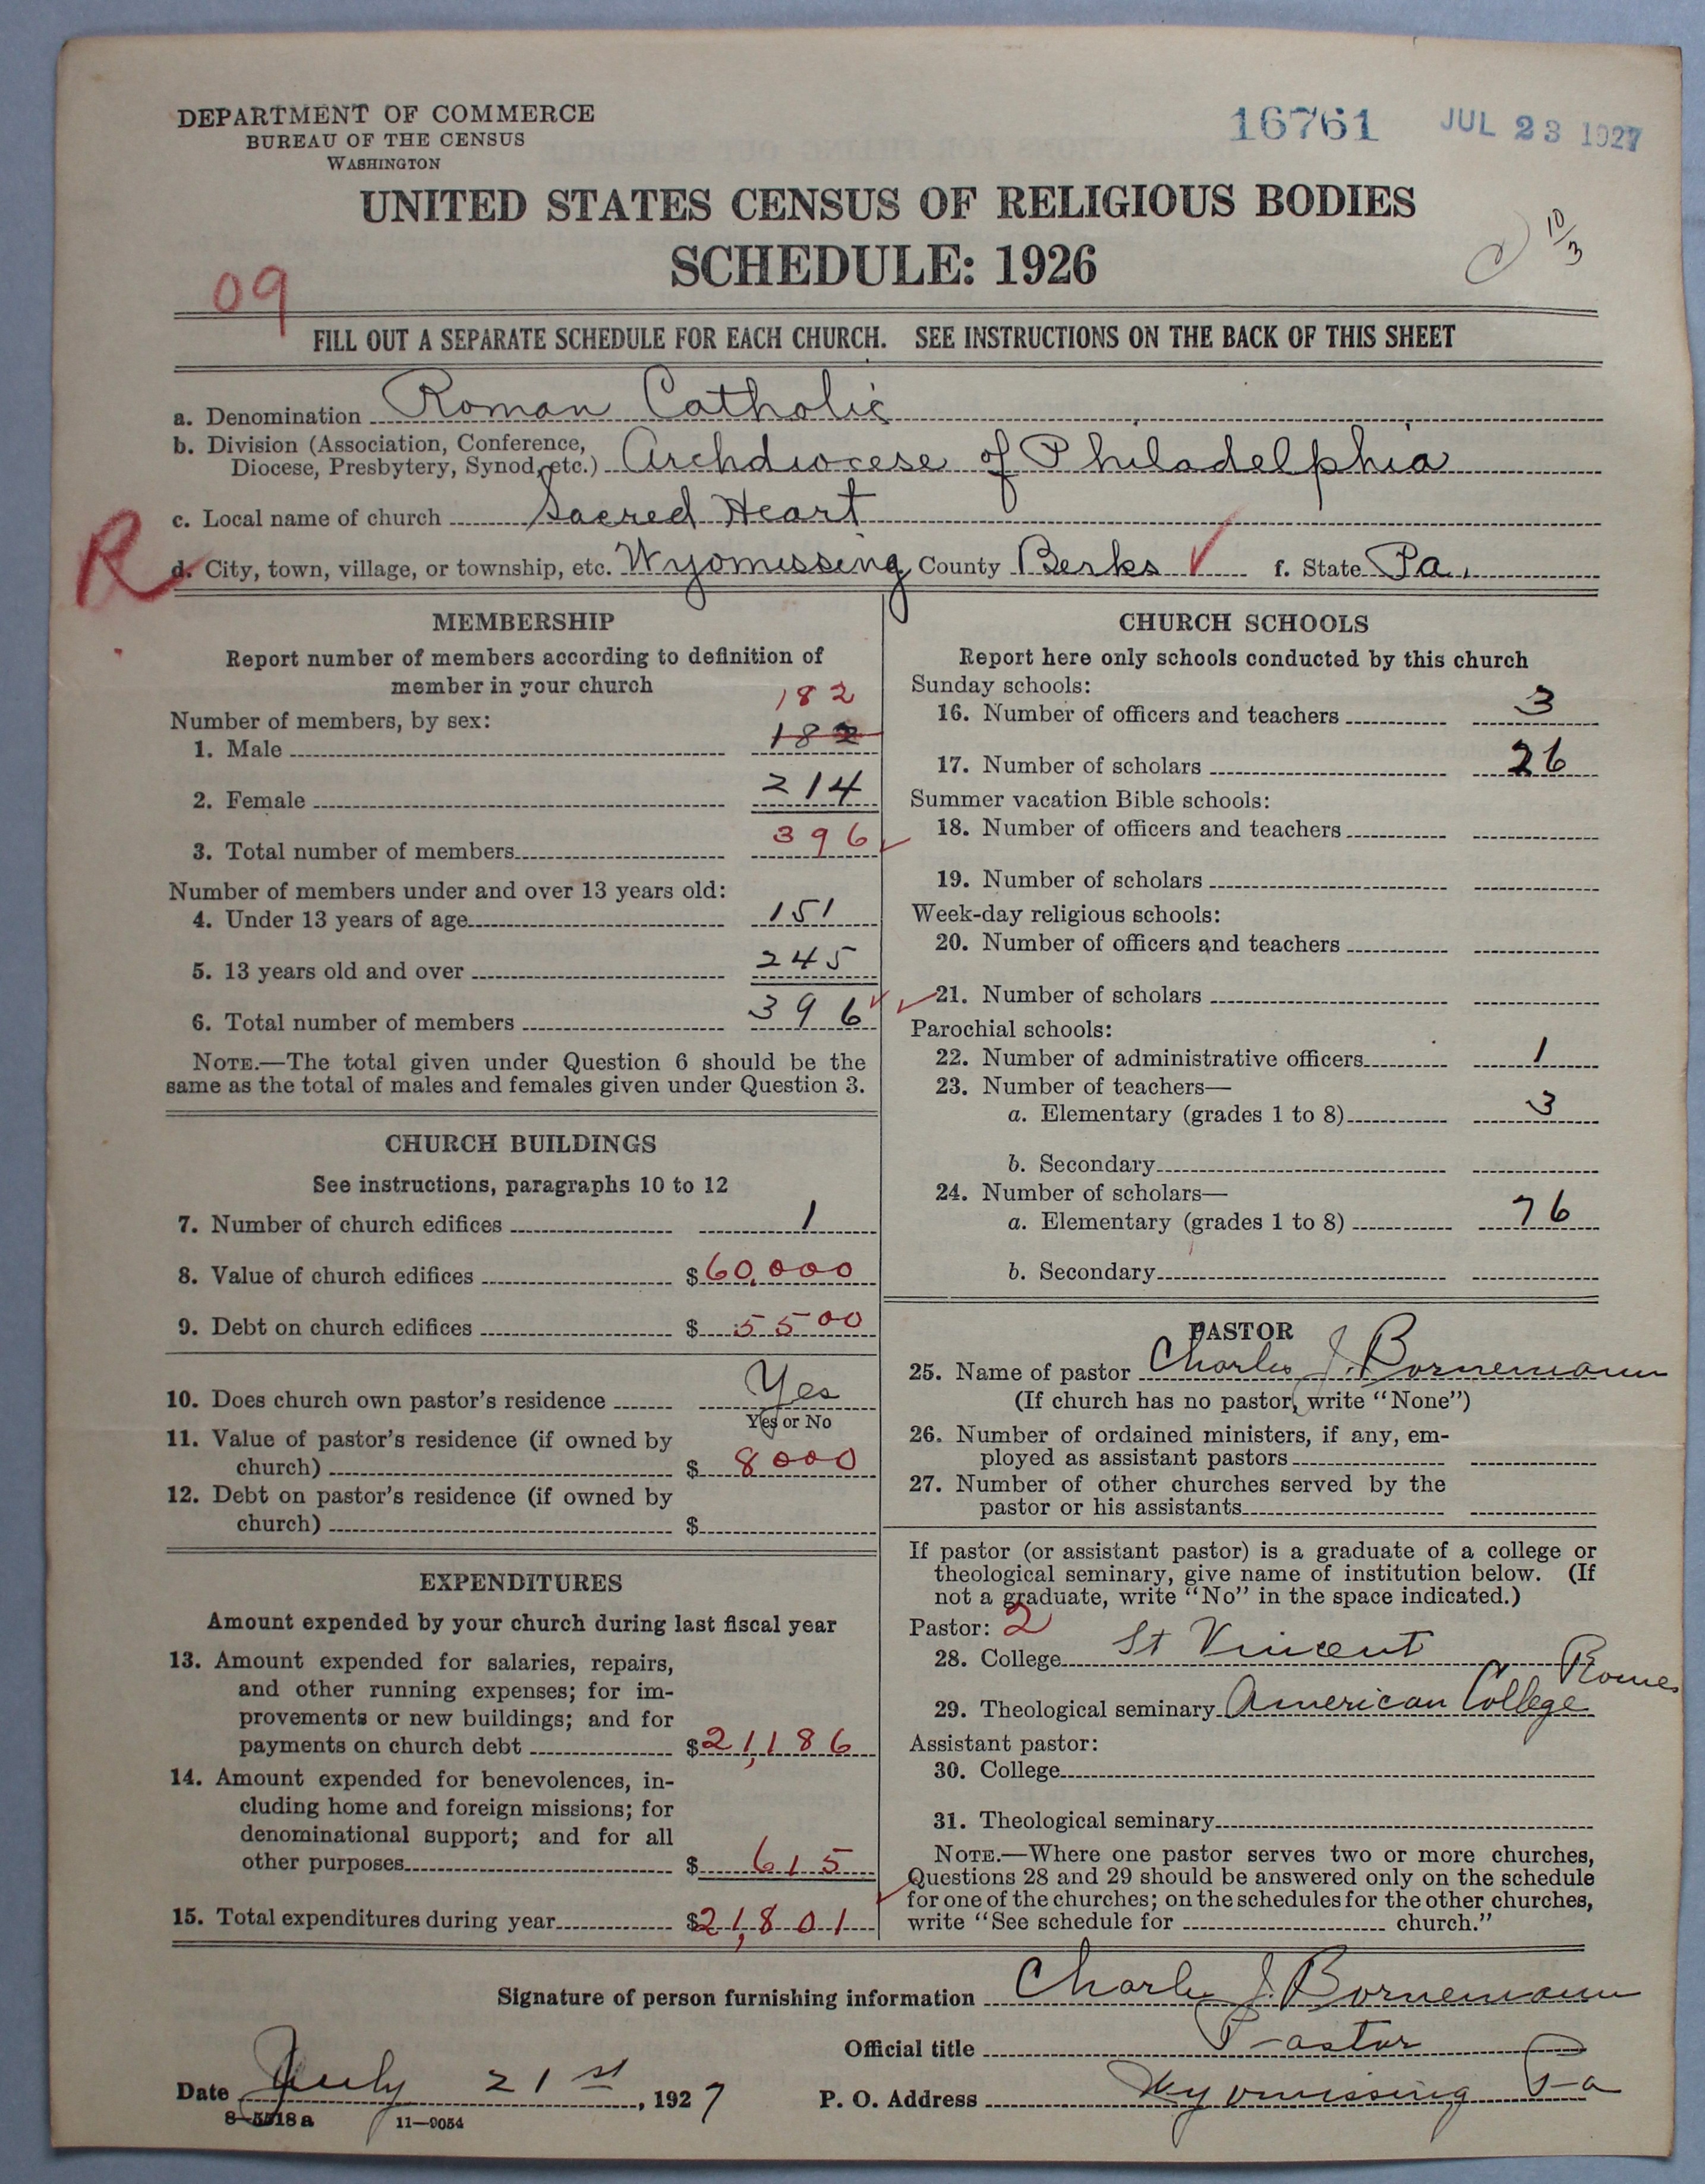 DEPARTMENT OF COMMERCE
BUREAU OF THE CENSUS
WASHINGTON
16761 JUL 23 1927
UNITED STATES CENSUS OF RELIGIOUS BODIES
SCHEDULE: 1926
10/3
09
FILL OUT A SEPARATE SCHEDULE FOR EACH CHURCH. SEE INSTRUCTIONS ON THE BACK OF THIS SHEET
a. Denomination Roman Catholic
b. Division (Association, Conference,
Diocese, Presbytery, Synod, etc.) Archdiocese of Philadelphia
c. Local name of church Sacred Heart
R
d. City, town, village, or township, etc. Wyomissing County Berks ✓ f. State Pa.
MEMBERSHIP
Report number of members according to definition of
member in your church
182
Number of members, by sex:
1. Male 182
2. Female 214
3. Total number of members 396 ✓
Number of members under and over 13 years old:
4. Under 13 years of age 151
5. 13 years old and over 245
6. Total number of members 396 ✓
NOTE.—The total given under Question 6 should be the
same as the total of males and females given under Question 3.
CHURCH BUILDINGS
See instructions, paragraphs 10 to 12
7. Number of church edifices 1
8. Value of church edifices $60,000
9. Debt on church edifices $5500
10. Does church own pastor's residence Yes
Yes or No
11. Value of pastor's residence (if owned by
church) $8000
12. Debt on pastor's residence (if owned by
church) $
EXPENDITURES
Amount expended by your church during last fiscal year
13. Amount expended for salaries, repairs,
and other running expenses; for im-
provements or new buildings; and for
payments on church debt $21,186
14. Amount expended for benevolences, in-
cluding home and foreign missions; for
denominational support; and for all
other purposes $615
15. Total expenditures during year $21,801 ✓
CHURCH SCHOOLS
Report here only schools conducted by this church
Sunday schools:
16. Number of officers and teachers 3
17. Number of scholars 26
Summer vacation Bible schools:
18. Number of officers and teachers
19. Number of scholars
Week-day religious schools:
20. Number of officers and teachers
✓ 21. Number of scholars
Parochial schools:
22. Number of administrative officers 1
23. Number of teachers—
a. Elementary (grades 1 to 8) 3
b. Secondary
24. Number of scholars—
a. Elementary (grades 1 to 8) 76
b. Secondary
PASTOR
25. Name of pastor Charles J. Bornemann
(If church has no pastor, write "None")
26. Number of ordained ministers, if any, em-
ployed as assistant pastors
27. Number of other churches served by the
pastor or his assistants
If pastor (or assistant pastor) is a graduate of a college or
theological seminary, give name of institution below. (If
not a graduate, write "No" in the space indicated.)
Pastor: 2
28. College St Vincent
29. Theological seminary American College Rome
Assistant pastor:
30. College
31. Theological seminary
NOTE.—Where one pastor serves two or more churches,
Questions 28 and 29 should be answered only on the schedule
for one of the churches; on the schedules for the other churches,
write "See schedule for church."
Signature of person furnishing information Charles J. Bornemann
Official title Pastor
Date July 21st, 1927 P. O. Address Wyomissing Pa
8—5518a 11—9054